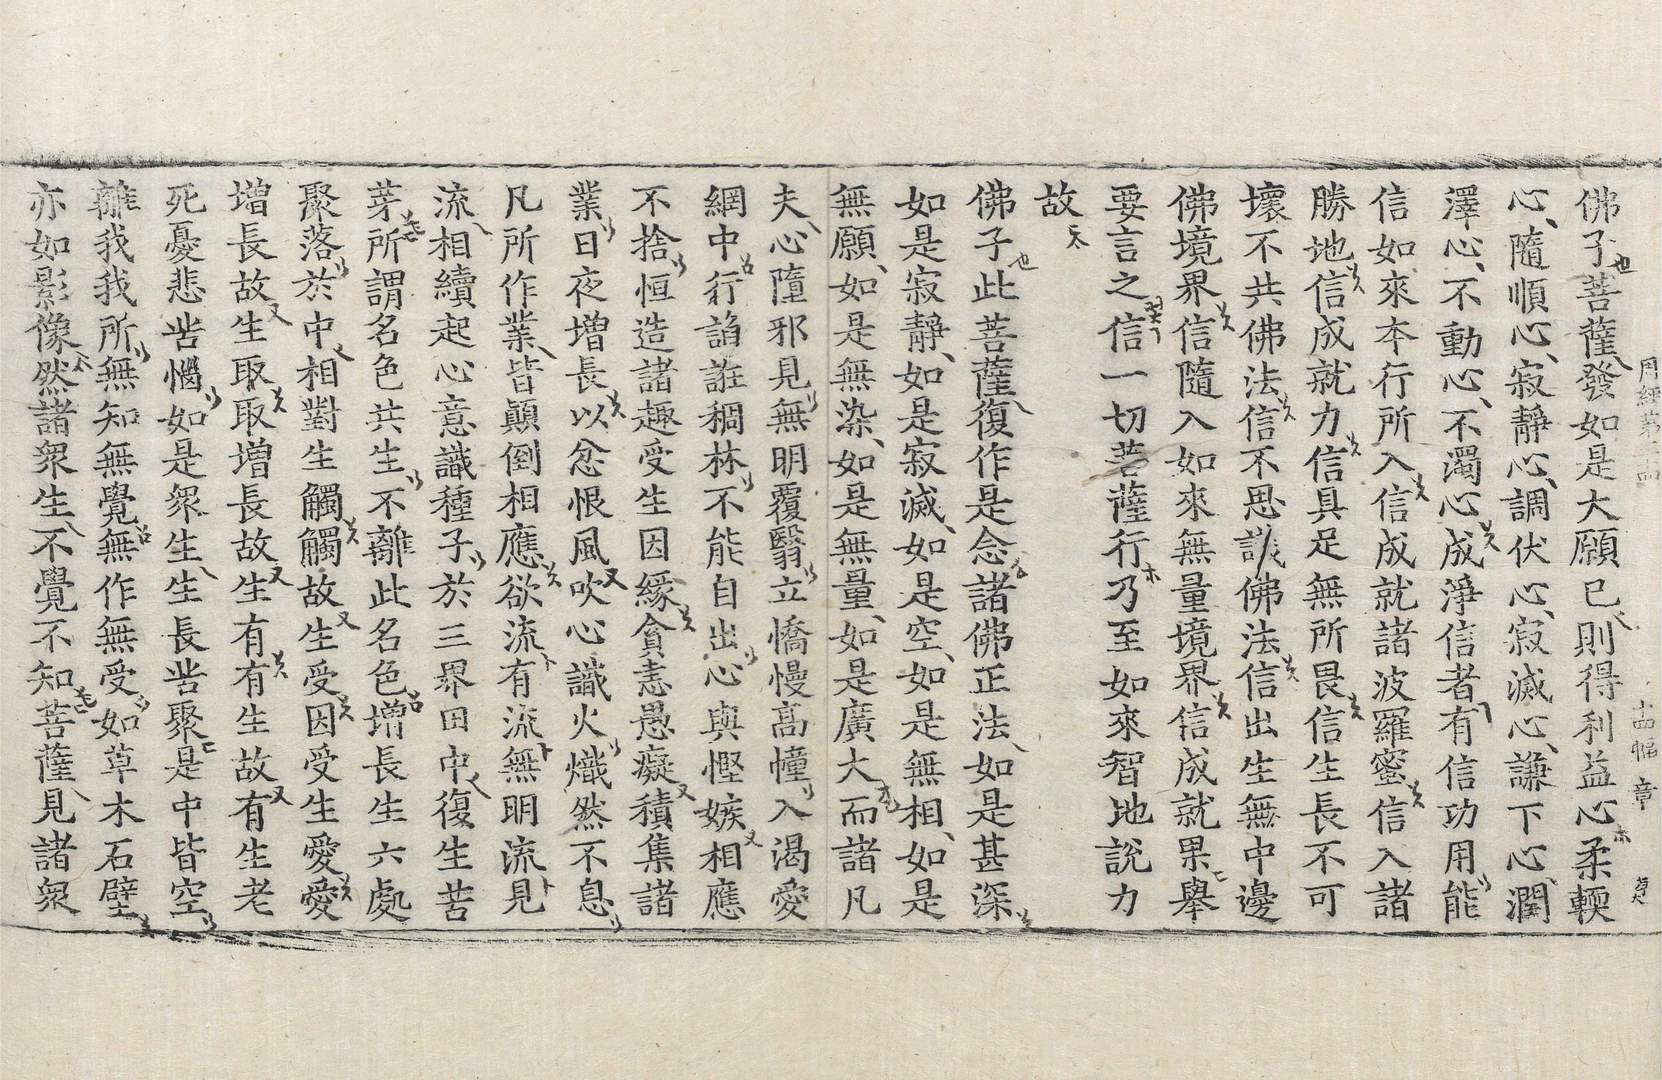 周經第
十四幅 章
佛子菩薩發如是大願已則得利益心柔輭
心隨順心寂靜心調伏心寂滅心謙下心潤
澤心不動心不濁心成淨信者有信功用能
信如來本行所入信成就諸波羅蜜信入諸
勝地信成就力信具足無所畏信生長不可
壞不共佛法信不思議佛法信出生無中邊
佛境界信隨入如來無量境界信成就果舉
要言之信一切菩薩行乃至如來智地說力
故
佛子此菩薩復作是念諸佛正法如是甚深
如是寂靜如是寂滅如是空如是無相如是
無願如是無染如是無量如是廣大而諸凡
夫心墮邪見無明覆翳立憍慢高幢入渴愛
網中行諂誑稠林不能自出心與慳嫉相應
不捨恒造諸趣受生因緣貪恚愚癡積集諸
業日夜增長以忿恨風吹心識火熾然不息
凡所作業皆顚倒相應欲流有流無明流見
流相續起心意識種子於三界田中復生苦
芽所謂名色共生不離此名色增長生六處
聚落於中相對生觸觸故生受因受生愛愛
增長故生取取增長故生有有生故有生老
死憂悲苦惱如是衆生生長苦聚是中皆空
離我我所無知無覺無作無受如草木石壁
亦如影像然諸衆生不覺不知菩薩見諸衆